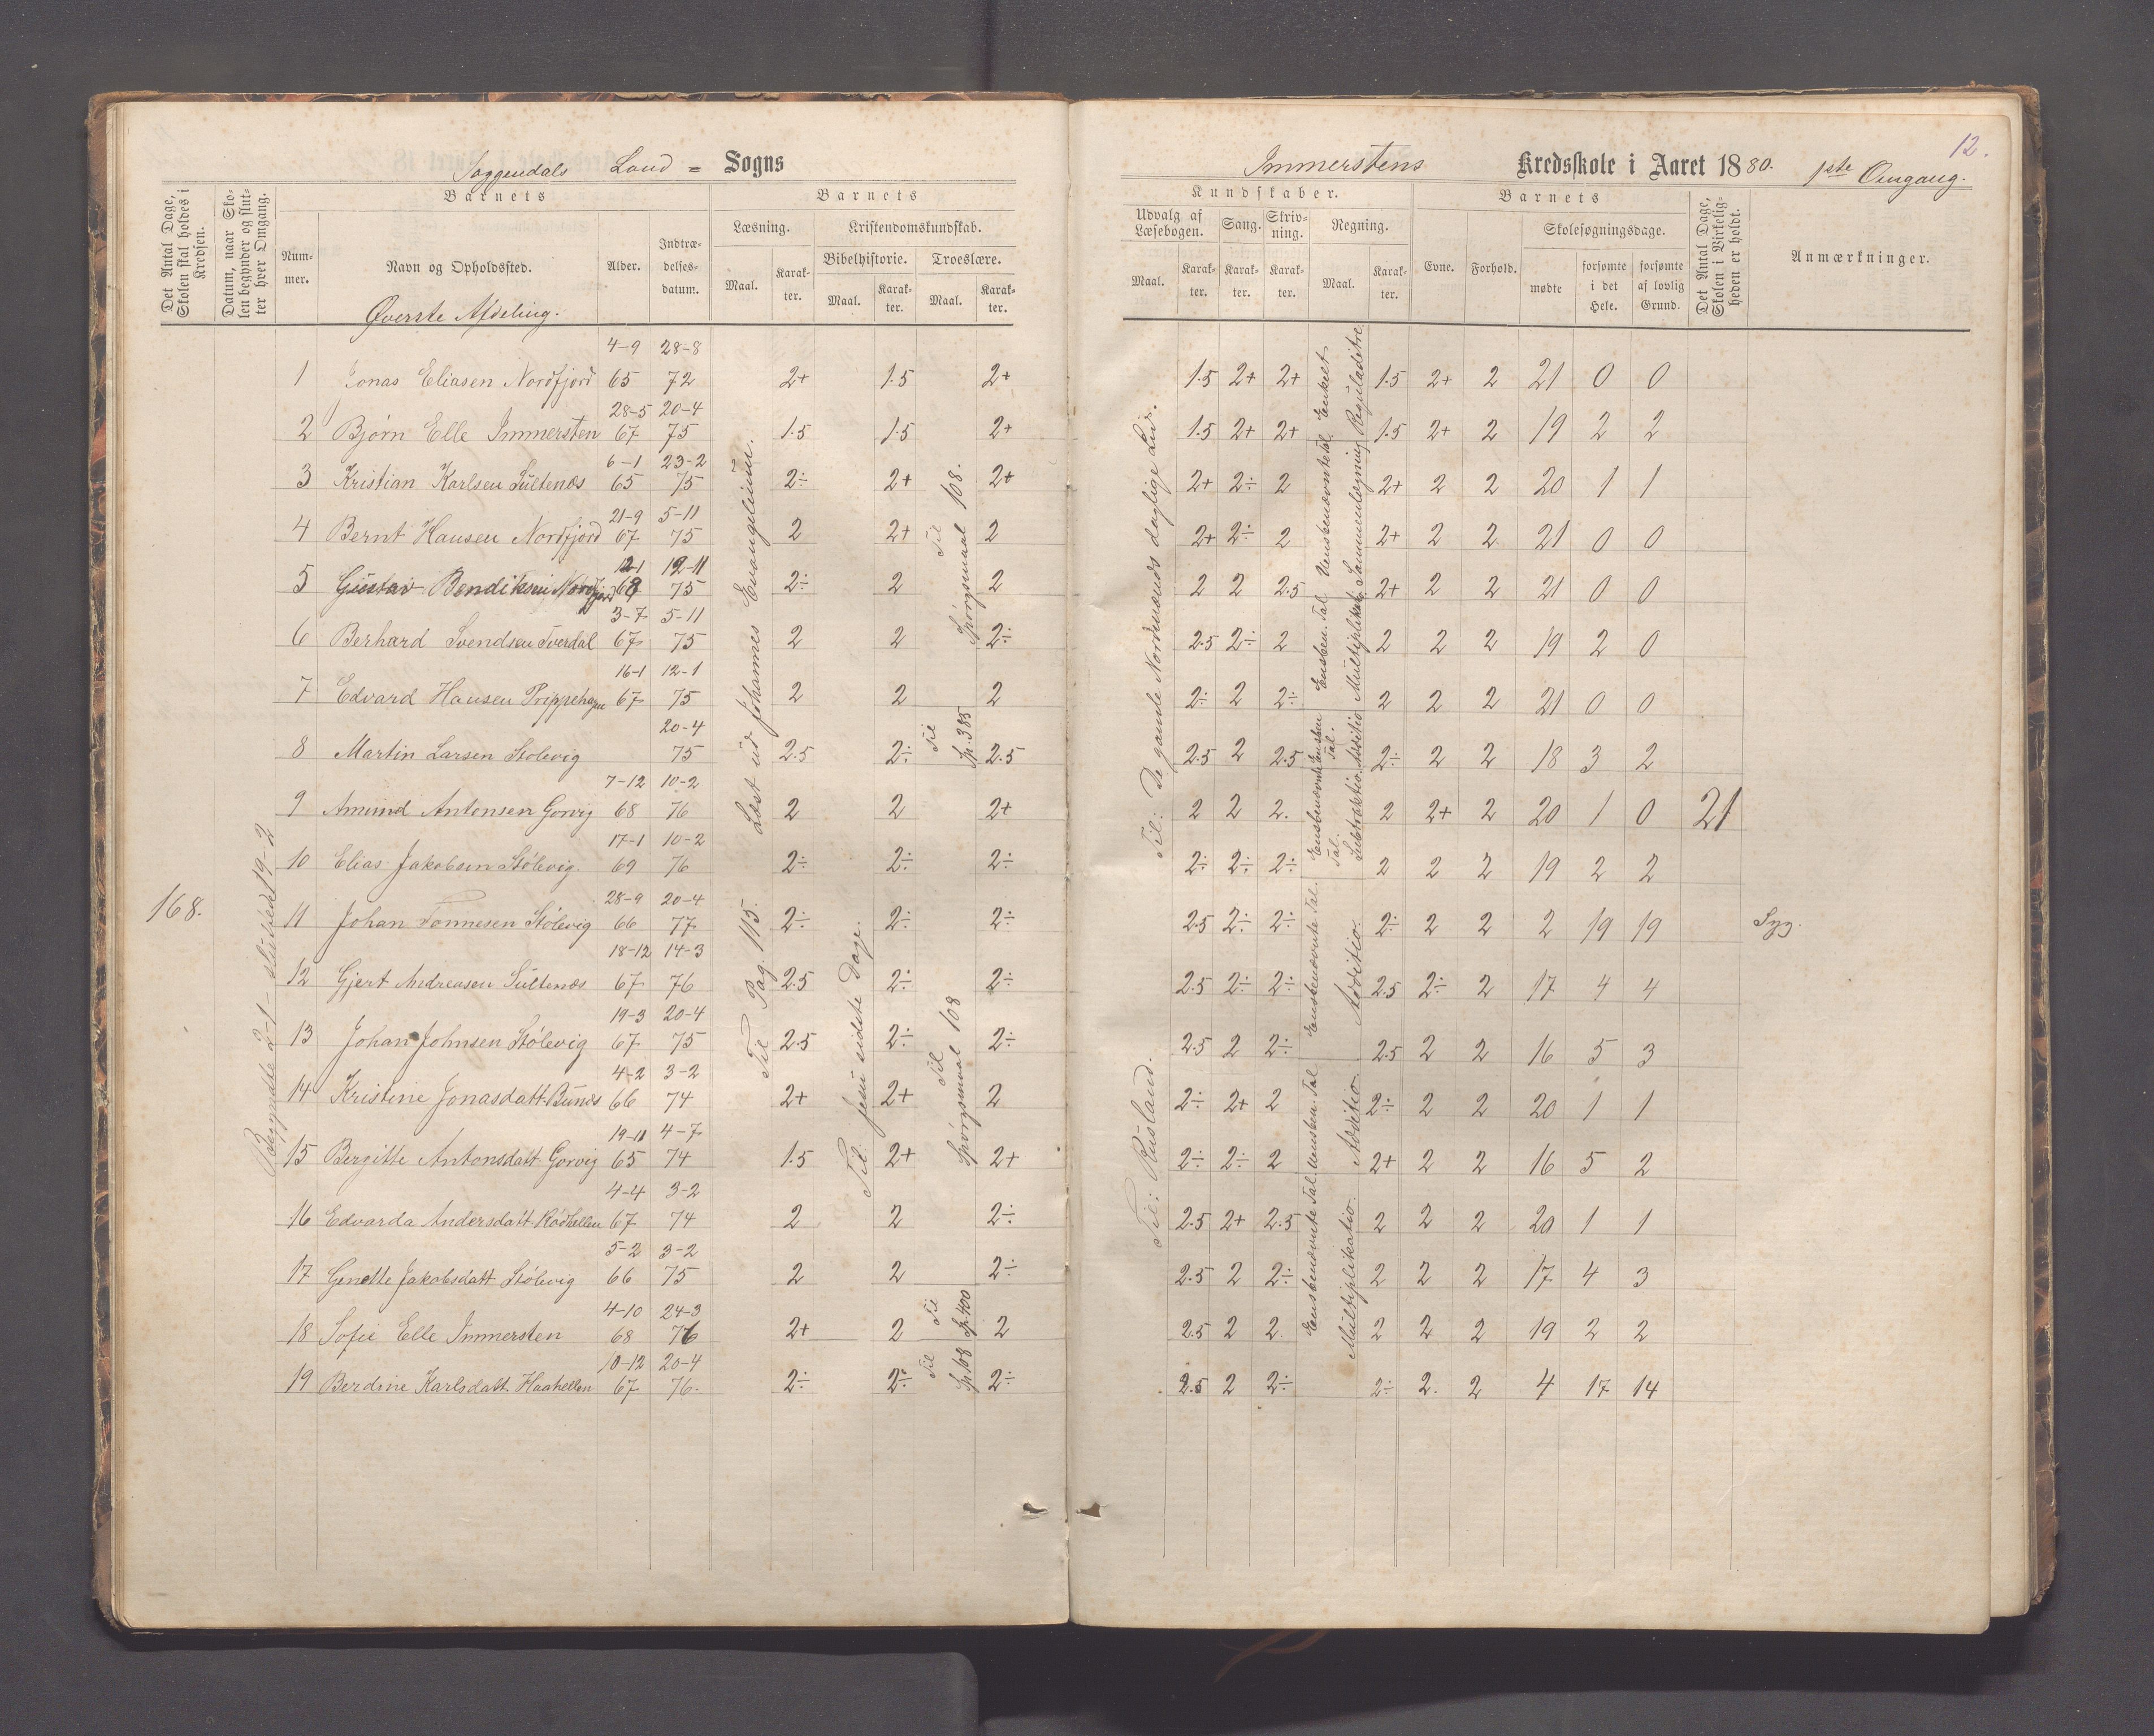 Soggendals Land = Sogns
Immerstens Kredsskole i Aaret 1880. 1ste Omgang.
12.
Det Antal Dage, Skolen skal holdes i Kredsen.
Datum, naar Skolen begynder og slutter hver Omgang.
Barnets
Nummer.
Navn og Opholdssted.
Alder.
Indtrædelsesdatum.
Barnets
Læsning.
Maal.
Karakter.
Kristendomskundskab.
Bibelhistorie.
Maal.
Karakter.
Troeslære.
Maal.
Karakter.
Kundskaber.
Udvalg af Læsebogen.
Maal.
Karakter.
Sang.
Karakter.
Skrivning.
Karakter.
Regning.
Maal.
Karakter.
Barnets
Evne.
Forhold.
Skolesøgningsdage.
mødte
forsømte i det Hele.
forsømte af lovlig Grund.
Det Antal Dage, Skolen i Virkeligheden er holdt.
Anmærkninger.
Øverste Afdeling.
4-9 28-8
1 Jonas Eliasen Nordfjord 65 72 2+ 1.5 2+ 1.5 2+ 2+ 1.5 2+ 2 21 0 0
28-5 20-4
2 Bjørn Elle Immersten 67 75 1.5 1.5 2+ 1.5 2+ 2+ 1.5 2+ 2 19 2 2
6-1 23-2
3 Kristian Karlsen Sultenæs 65 75 2÷ 2+ 2+ 2+ 2÷ 2 2+ 2 2 20 1 1
21-9 5-11
4 Bernt Hansen Nordfjord 67 75 2 2+ 2 2+ 2÷ 2 2+ 2 2 21 0 0
12-1 12-11
5 Gustav Bendiksen Nordfjord 68 75 2÷ 2 2 2 2 2.5 2+ 2 2 21 0 0
3-7 5-11
6 Berhard Svendsen Tverdal 67 75 2 2 2÷ 2.5 2÷ 2 2 2 2 19 2 0
16-1 12-1
7 Edvard Hansen Prippehagen 67 75 2 2 2 2÷ 2 2÷ 2 2 2 21 0 0
20-4
8 Martin Larsen Stolevig 75 2.5 2÷ 2.5 2.5 2 2.5 2÷ 2 2 18 3 2
7-12 10-2
9 Amund Antonsen Gorvig 68 76 2 2 2+ 2 2 2. 2 2+ 2 20 1 0 21
17-1 10-2
10 Elias Jakobsen Stølevig. 69 76 2÷ 2÷ 2÷ 2÷ 2÷ 2÷ 2 2 2 19 2 2
28-9 20-4
168.
11 Johan Tonnesen Stølevig 66 77 2÷ 2÷ 2÷ 2.5 2÷ 2÷ 2÷ 2 2 2 19 19 Syg.
18-12 14-3
12 Gjert Andreasen Sultenæs 67 76 2.5 2÷ 2÷ 2.5 2÷ 2÷ 2.5 2÷ 2 17 4 4
19-3 20-4
13 Johan Johnsen Stølevig 67 75 2.5 2÷ 2÷ 2.5 2 2÷ 2.5 2 2 16 5 3
4-2 3-2
14 Kristine Jonasdatt. Bunæs 66 74 2+ 2+ 2 2÷ 2+ 2 2÷ 2 2 20 1 1
19-11 4-7
15 Bergitte Antonsdatt. Gorvig 65 74 1.5 2+ 2+ 2÷ 2÷ 2 2+ 2 2 16 5 2
4-4 3-2
16 Edvarda Andersdatt. Rødhellen 67 74 2 2 2÷ 2.5 2+ 2.5 2 2 2 20 1 1
5-2 3-2
17 Genette Jakobsdatt Stølevig 66 75 2 2 2÷ 2.5 2 2÷ 2 2 2 17 4 3
4-10 24-3
18 Sofie Elle Immersten 68 76 2+ 2 2 2.5 2 2. 2 2 2 19 2 2
10-12 20-4
19 Berdine Karlsdatt. Haahellen 67 76. 2÷ 2÷ 2÷ 2.5 2 2÷ 2÷ 2. 2 4 17 14
Begyndte 2-1 - sluttede 19-2
Læst ud Johannes Evangelium.
Til Pag. 115.
Til: Jesu sidste Dage.
Til Spørgsmaal 108.
Til Sp. 385
Til Spørgsmaal 108
Til Sp. 400
Til Sp. 108
Til: De gamle Nordmænds daglige Liv.
Til: Rusland.
Enkelt Reguladetri
Uensbenævnte Tal Sammenlægning
Ensben. Tal Multiplikat.
Ensbenævnte Tal. Subtraktio.
Ensbenævnte Tal. Additio.
Uensben. Tal Additio.
Ensbenævnte Tal. Multiplikatio.